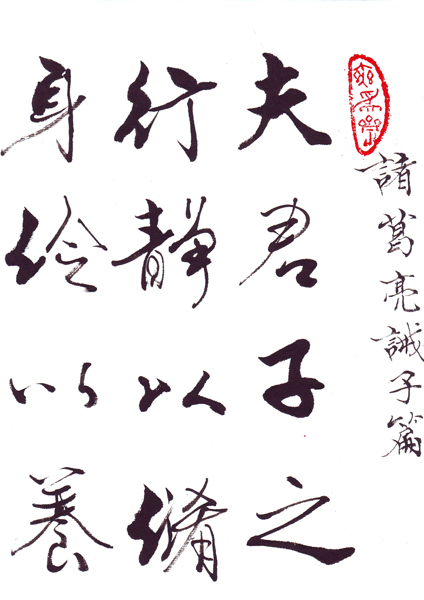 諸葛亮誡子篇
夫君子之
行靜以脩
身儉以養